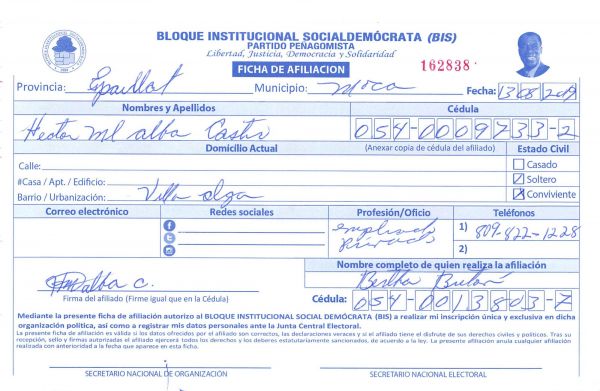 BLOQUE INSTITUCIONAL SOCIALDEMÓCRATA (BIS)
PARTIDO PEÑAGOMISTA
Libertad, Justicia, Democracia y Solidaridad
FICHA DE AFILIACION
162838
Provincia: Espaillat Municipio: Moca Fecha: 13 08 2019
Nombres y Apellidos Cédula
Hector Ml alba Castro 054-0009733-2
Domicilio Actual (Anexar copia de cédula del afiliado) Estado Civil
Calle: Casado
#Casa / Apt. / Edificio: Soltero
Barrio / Urbanización: Villa olga Conviviente
Correo electrónico Redes sociales Profesión/Oficio Teléfonos
empleado 1) 809-822-1228
privado 2)
Nombre completo de quien realiza la afiliación
HMalba C. Bertha
Firma del afiliado (Firme igual que en la Cédula) Cédula: 054-0013803-7
Mediante la presente ficha de afiliación autorizo al BLOQUE INSTITUCIONAL SOCIAL DEMÓCRATA (BIS) a realizar mi inscripción única y exclusiva en dicha
organización política, así como a registrar mis datos personales ante la Junta Central Electoral.
La presente ficha de afiliación es valida si los datos ofrecidos por el afiliado son correctos, las declaraciones veraces y si el afiliado tiene el disfrute de sus derechos civiles y politicos. Tras su
recepción, sello y firmas autorizadas el afiliado ejercerá todos los derechos y los deberes estatutariamente sancionados, de acuerdo a la ley. La presente afiliación anula cualquier afiliación
realizada con anterioridad a la fecha que aparece en esta ficha.
SECRETARIO NACIONAL DE ORGANIZACIÓN SECRETARIO NACIONAL ELECTORAL